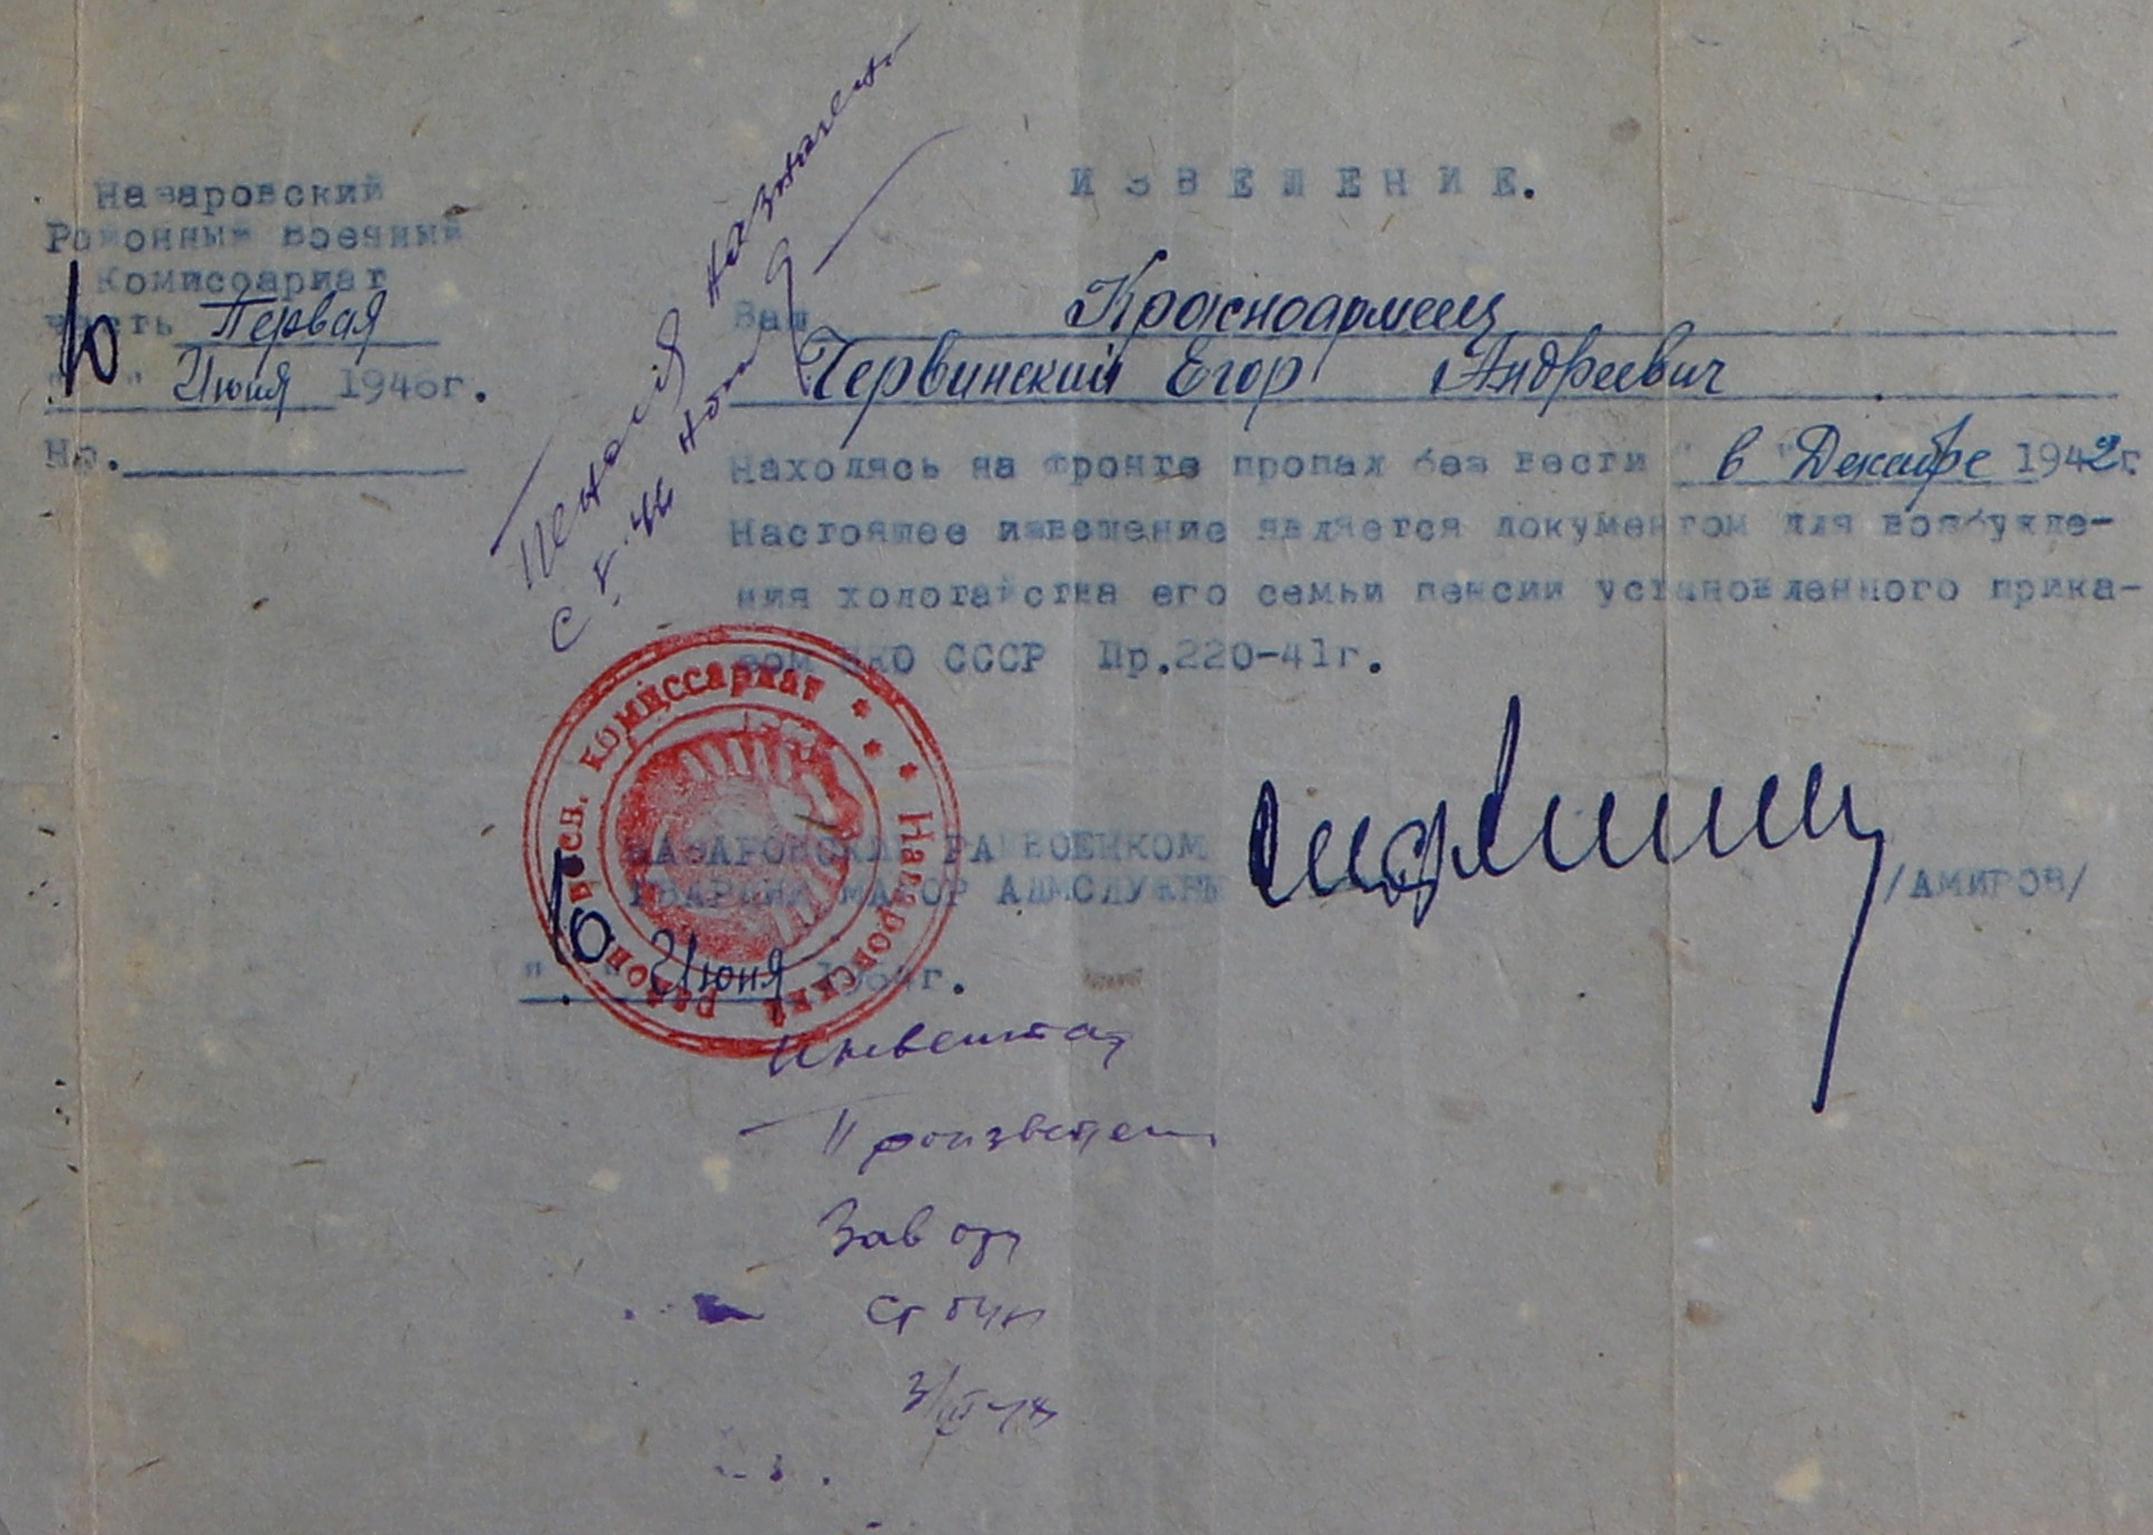 Назаровский
Районный военный
Комисоариат
часть Первая
"10" Июня 1946г.
Нр.
Пенсия назначен
с
ИЗВЕЩЕНИЕ.
Ваш Красноармеец
Червинский Егор Андреевич
Находясь на фронте пропал без вести " в " Декабре 1942г.
Настоящее извещение является документом для возбужде-
ния ходотайства его семьи пенсии установленного прика-
зом НКО СССР Пр.220-41г.
Назаровский Районн. воен. комиссариат
НАЗАРОВСКИЙ РАЙВОЕНКОМ
ГВАРДИИ МАЙОР АДМСЛУЖБЫ /АМИРОВ/
"10" Июня г.